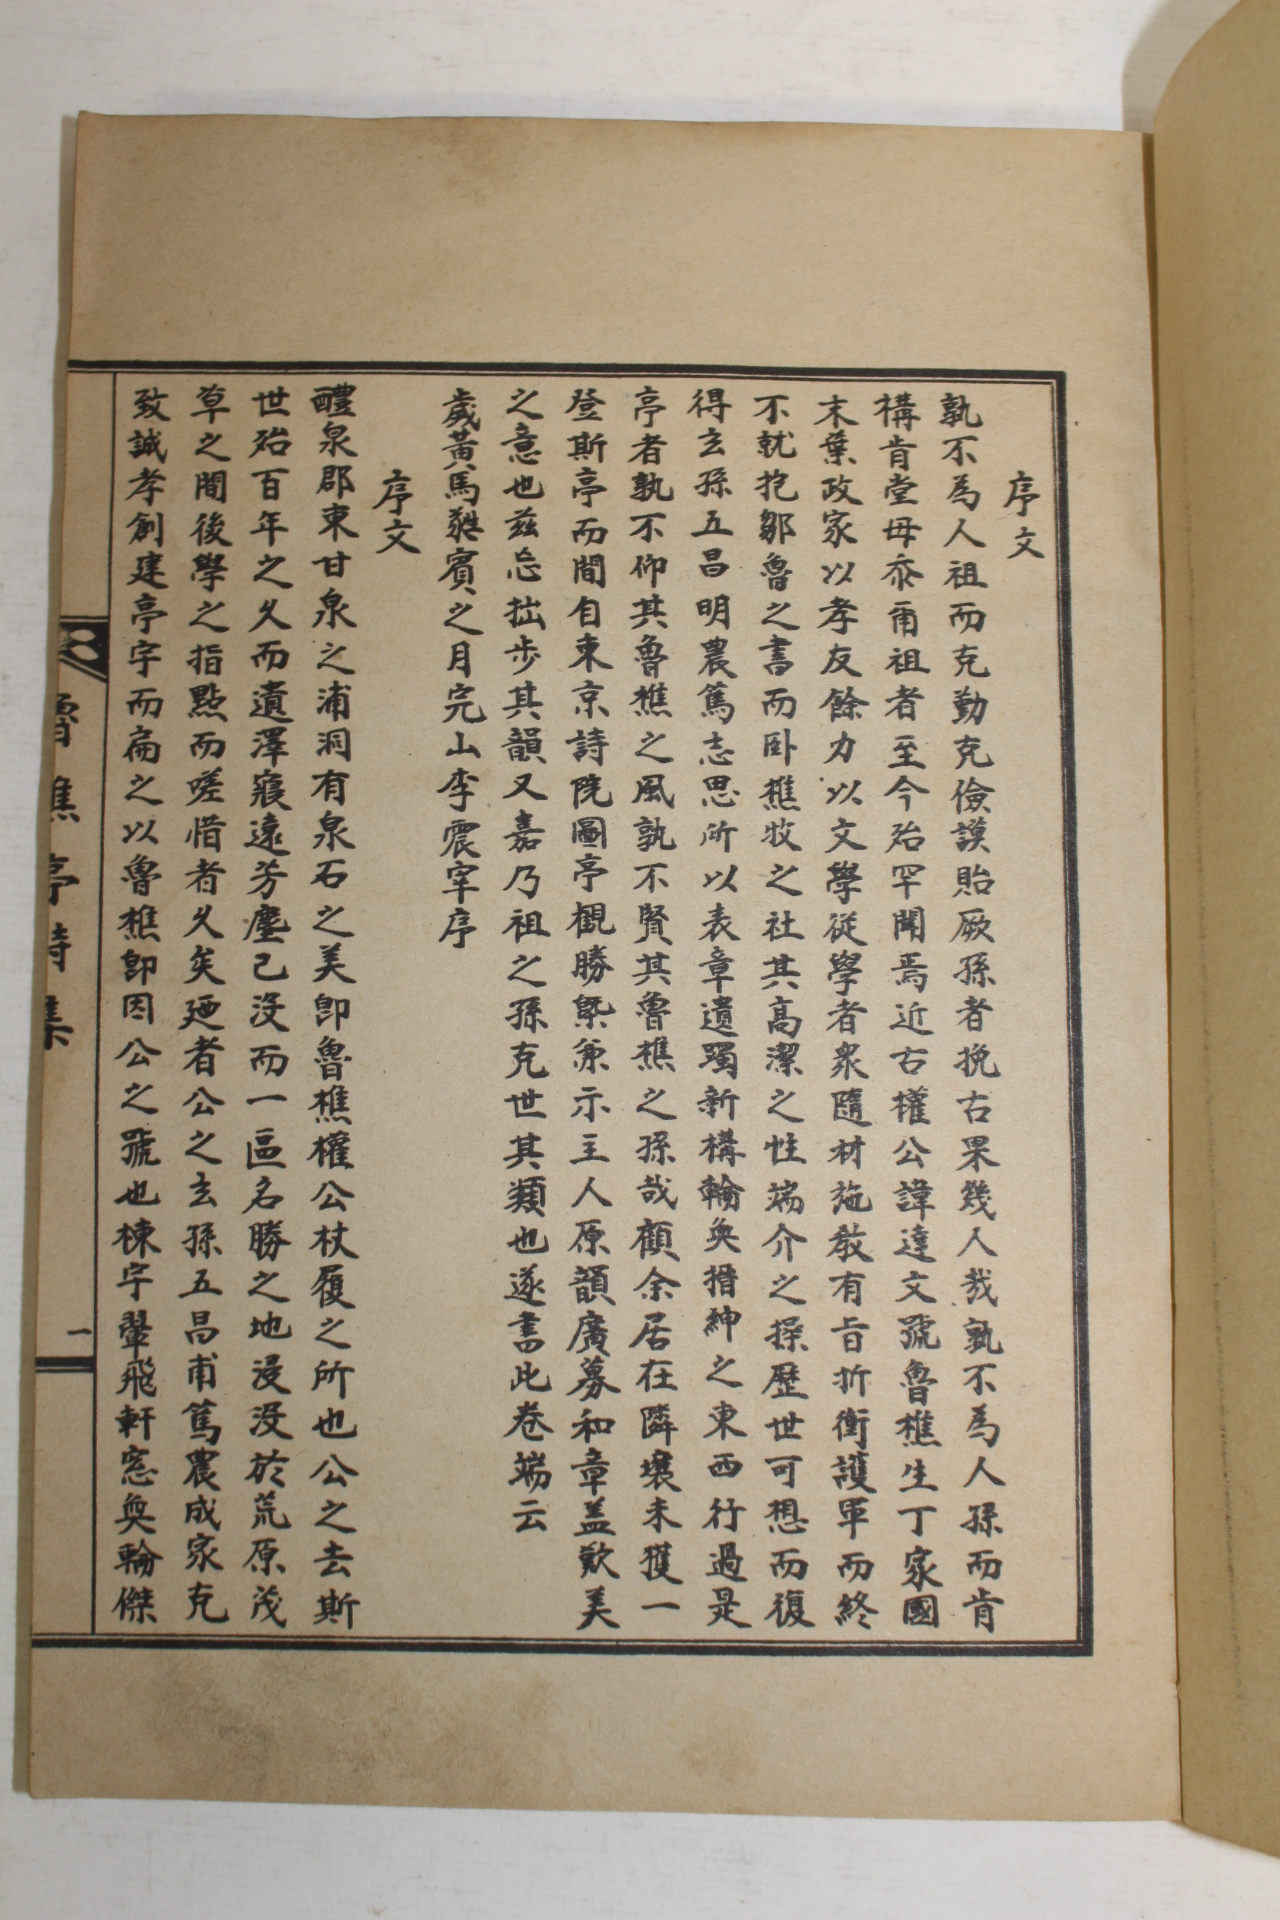 序文
孰不為人祖而克勤克儉謨貽厥孫者挽古果幾人哉孰不為人孫而肯
構肯堂毋忝甭祖者至今殆罕聞焉近古權公諱達文號魯樵生丁家國
末葉政家以孝友餘力以文學從學者衆隨材施教有旨折衝護軍而終
不就抱鄒魯之書而卧樵牧之社其高潔之性端介之操歷世可想而復
得玄孫五昌明農篤志思所以表章遺躅新構輪奐搢紳之東西行過是
亭者孰不仰其魯樵之風孰不賢其魯樵之孫哉顧余居在隣壤未獲一
登斯亭而間自東京詩院圖亭觀勝槩兼示主人原韻廣募和章盖歎美
之意也兹忘拙步其韻又嘉乃祖之孫克世其類也遂書此卷端云
歲黃馬蕤賓之月完山李震宰序
序文
醴泉郡東甘泉之浦洞有泉石之美卽魯樵權公杖履之所也公之去斯
世殆百年之久而遺澤寢遠芳塵已沒而一區名勝之地浸没於荒原茂
草之間後學之指點而嗟惜者久矣廼者公之玄孫五昌甫篤農成家克
致誠孝創建亭宇而扁之以魯樵卽因公之號也棟宇翬飛軒窓奐輪傑
魯樵亭詩集
一